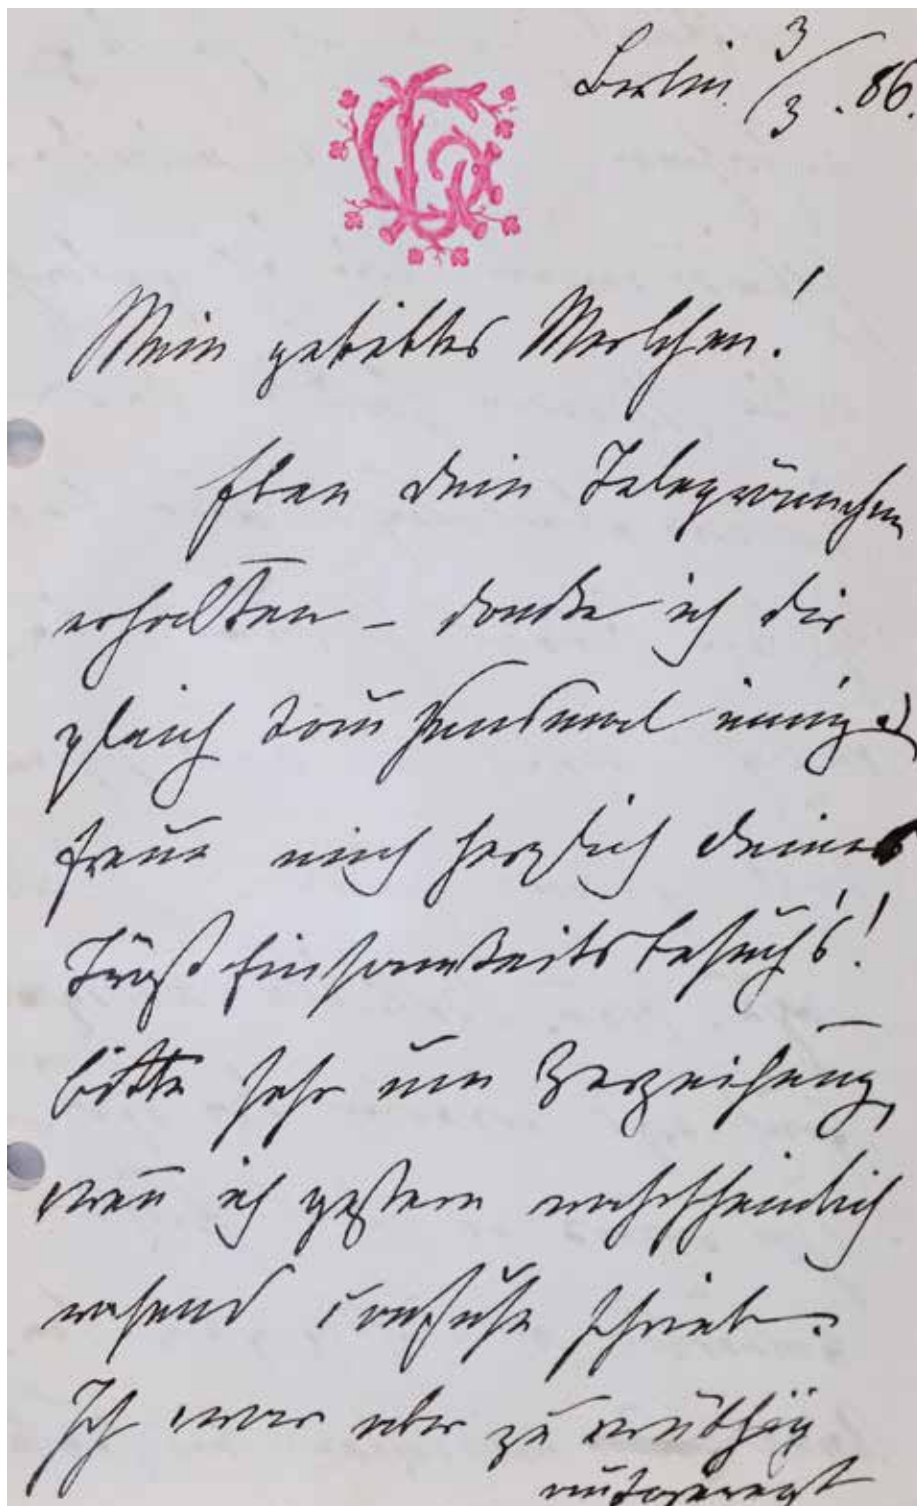 Berlin 3/3. 86.
Mein geliebtes
Eben dein Telegrämmchen
erhalten – danke ich dir
gleich tausendmal innig &
freue mich herzlich deines
Einsamkeitsbesuch's!
bitte sehr um Verzeihung,
wen̅ ich gestern wahrscheinlich
rasend confuse schrieb.
Ich war aber zu
aufgeregt